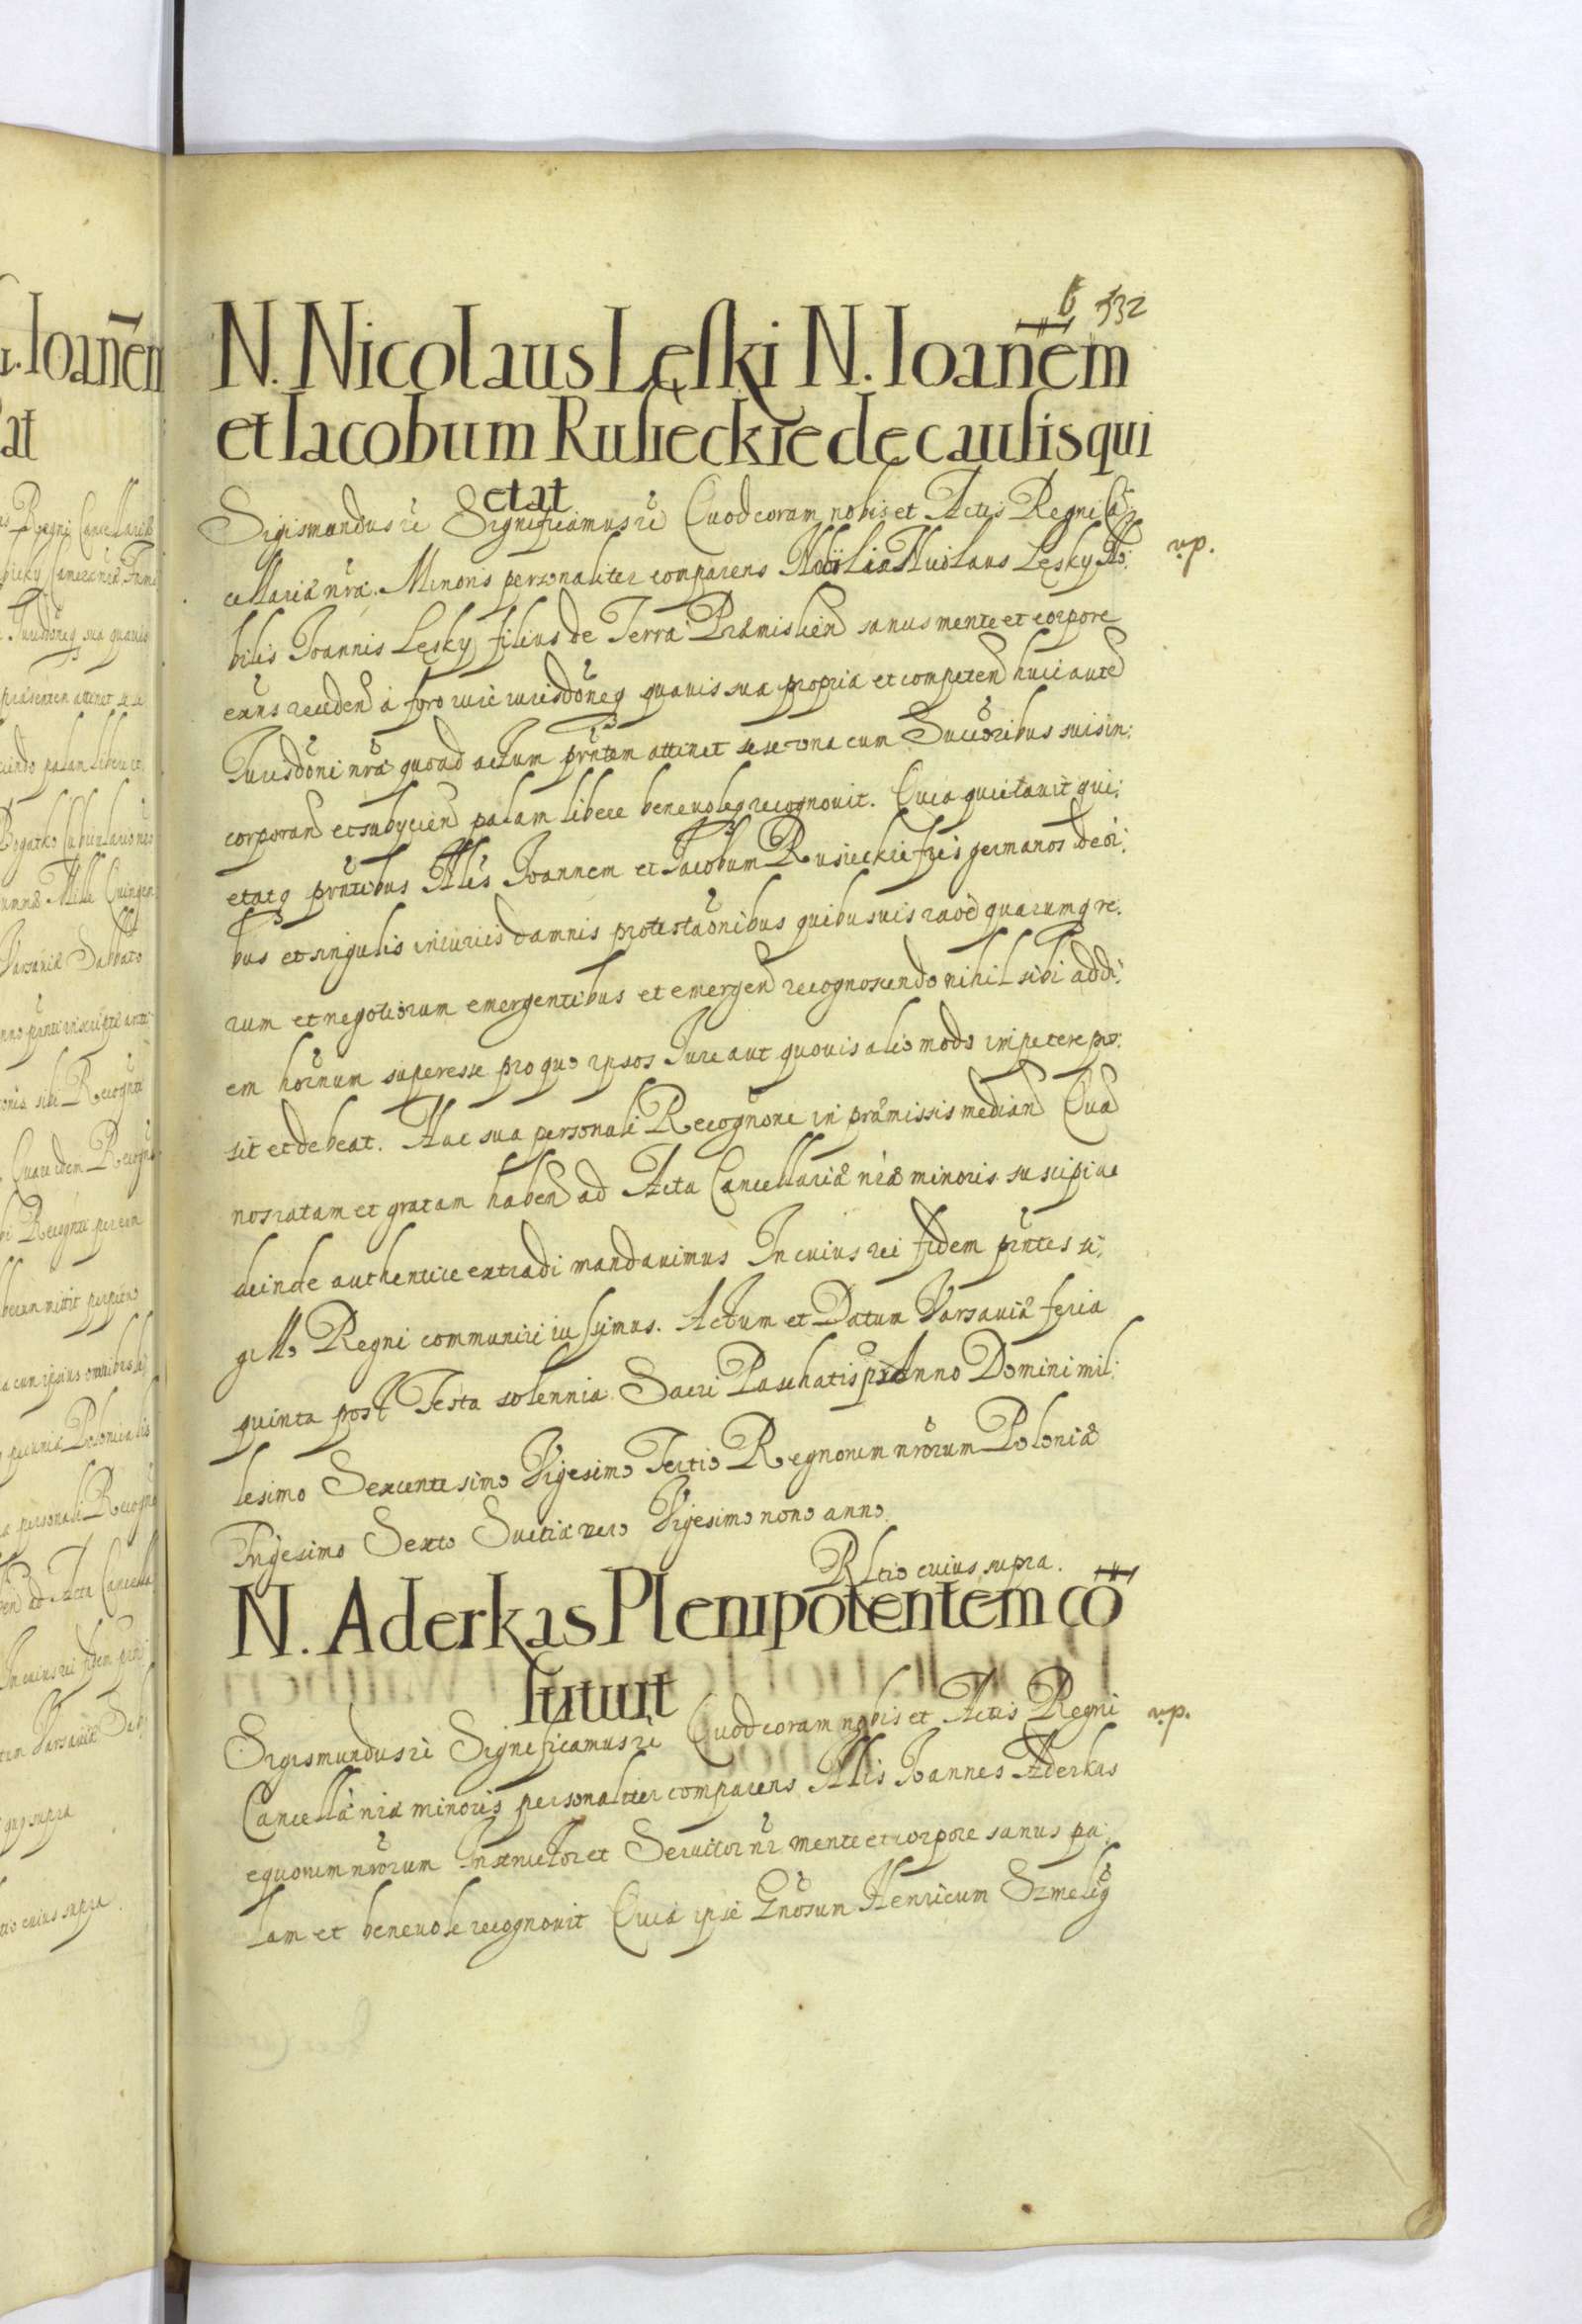 532
N. Nicolaus Lęski N. Ioañem
et Iacobum Rusieckie de causis qui
etat
Sigismundus &c Significamus &c Quod coram nobis et Actis Regni Cã
cellariæ nræ. Minoris personaliter comparens Nicolaus Lęsky No:
bilis Joannis Lęsky filius de Terra Præmislien sanus mente et corpore
exns receden à foro iurisdõneq quavis sua propria et competen huic aute
Jurisdõni nræ quoad actum prñtem attinet sese una cum Succõribus suis in:
corporan et subycien palam libere benevoleq recognovit. Quia quietavit qui:
etatq prñtibus Nles Joannem et Jacobum Rusieckie fres germanos de oi:
bus et singulis iniuriis damnis protestaõnibus quibusuis raõe quarumq re:
rum et negotiorum emergentibus et emergen recognoscendo nihil sibi addi:
em horñum superesse pro quo ipsos Jure aut quovis alio modo impetere pos:
sit et debeat. Hac sua personali Recognõne in præmissis median Qua
nos ratam et gratam haben ad Acta Cancellariæ nræ minoris suscipi ac
deinde authentice extradi mandavimus In cuius rei fidem prñtes si:
gillo Regni communiri iussimus. Actum et Datum Varsaviæ feria
quinta post Festa solennia Sacri Paschatis Anno Domini mil:
lesimo Sexcentesimo Vigesimo Tertio Regnorum nrõrum Poloniæ
Trigesimo Sexto Sueciæ vero Vigesimo nono anno.
Rltio cuius supra.
N. Aderkas Plenipotentem cõ
stituit
Sigismundus &c Significamus &c Quod coram nobis et Actis Regni
Cancellã nræ minoris personaliter comparens Nlis Joannes Aderkas
equorum nrõrum Instructor et Servitor nr mente et corpore sanus pa:
lam et benevole recognovit Quia ipse Gnõsum Henricum Szmeling